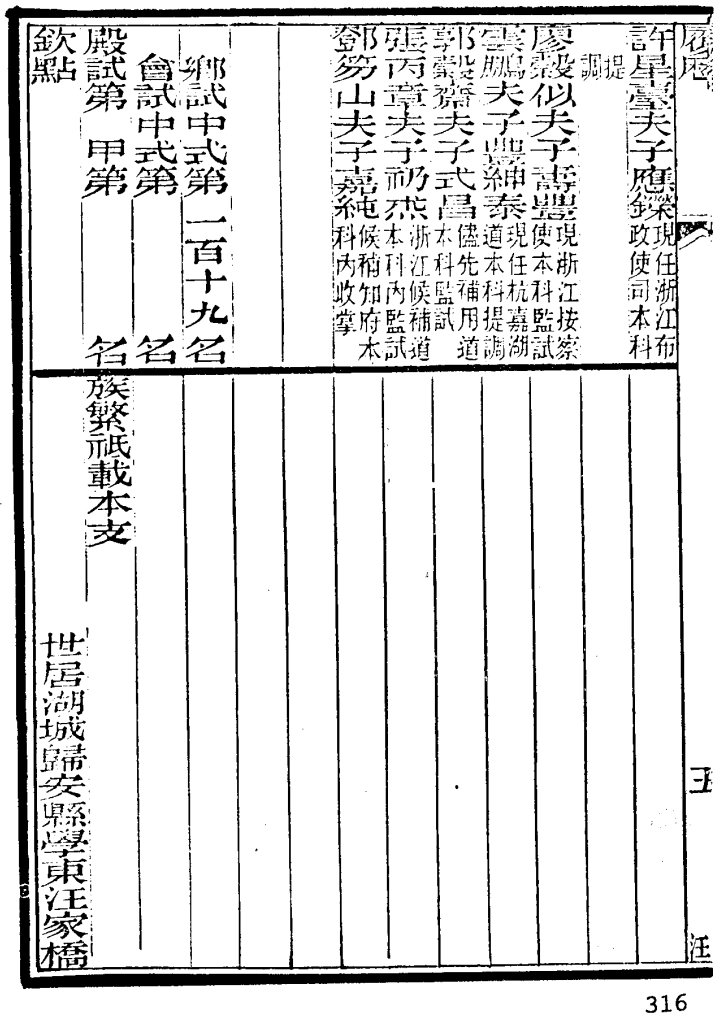 履歷
五
汪
許星臺夫子應鑅 現任浙江布
政使司本科
提
調
廖穀似夫子壽豐 現浙江按察
使本科監試
雲鵬夫子豐紳泰 現任杭嘉湖
道本科提調
穀齋夫子式昌 儘先補用道
本科監試
張丙章夫子礽杰 浙江候補道
本科內監試
鄧笏山夫子嘉純 候補知府本
科內收掌
鄉試中式第一百十九名
會試中式第 名
殿試第 甲第 名
欽點
族繁祗載本支
世居湖城歸安縣學東汪家橋
316